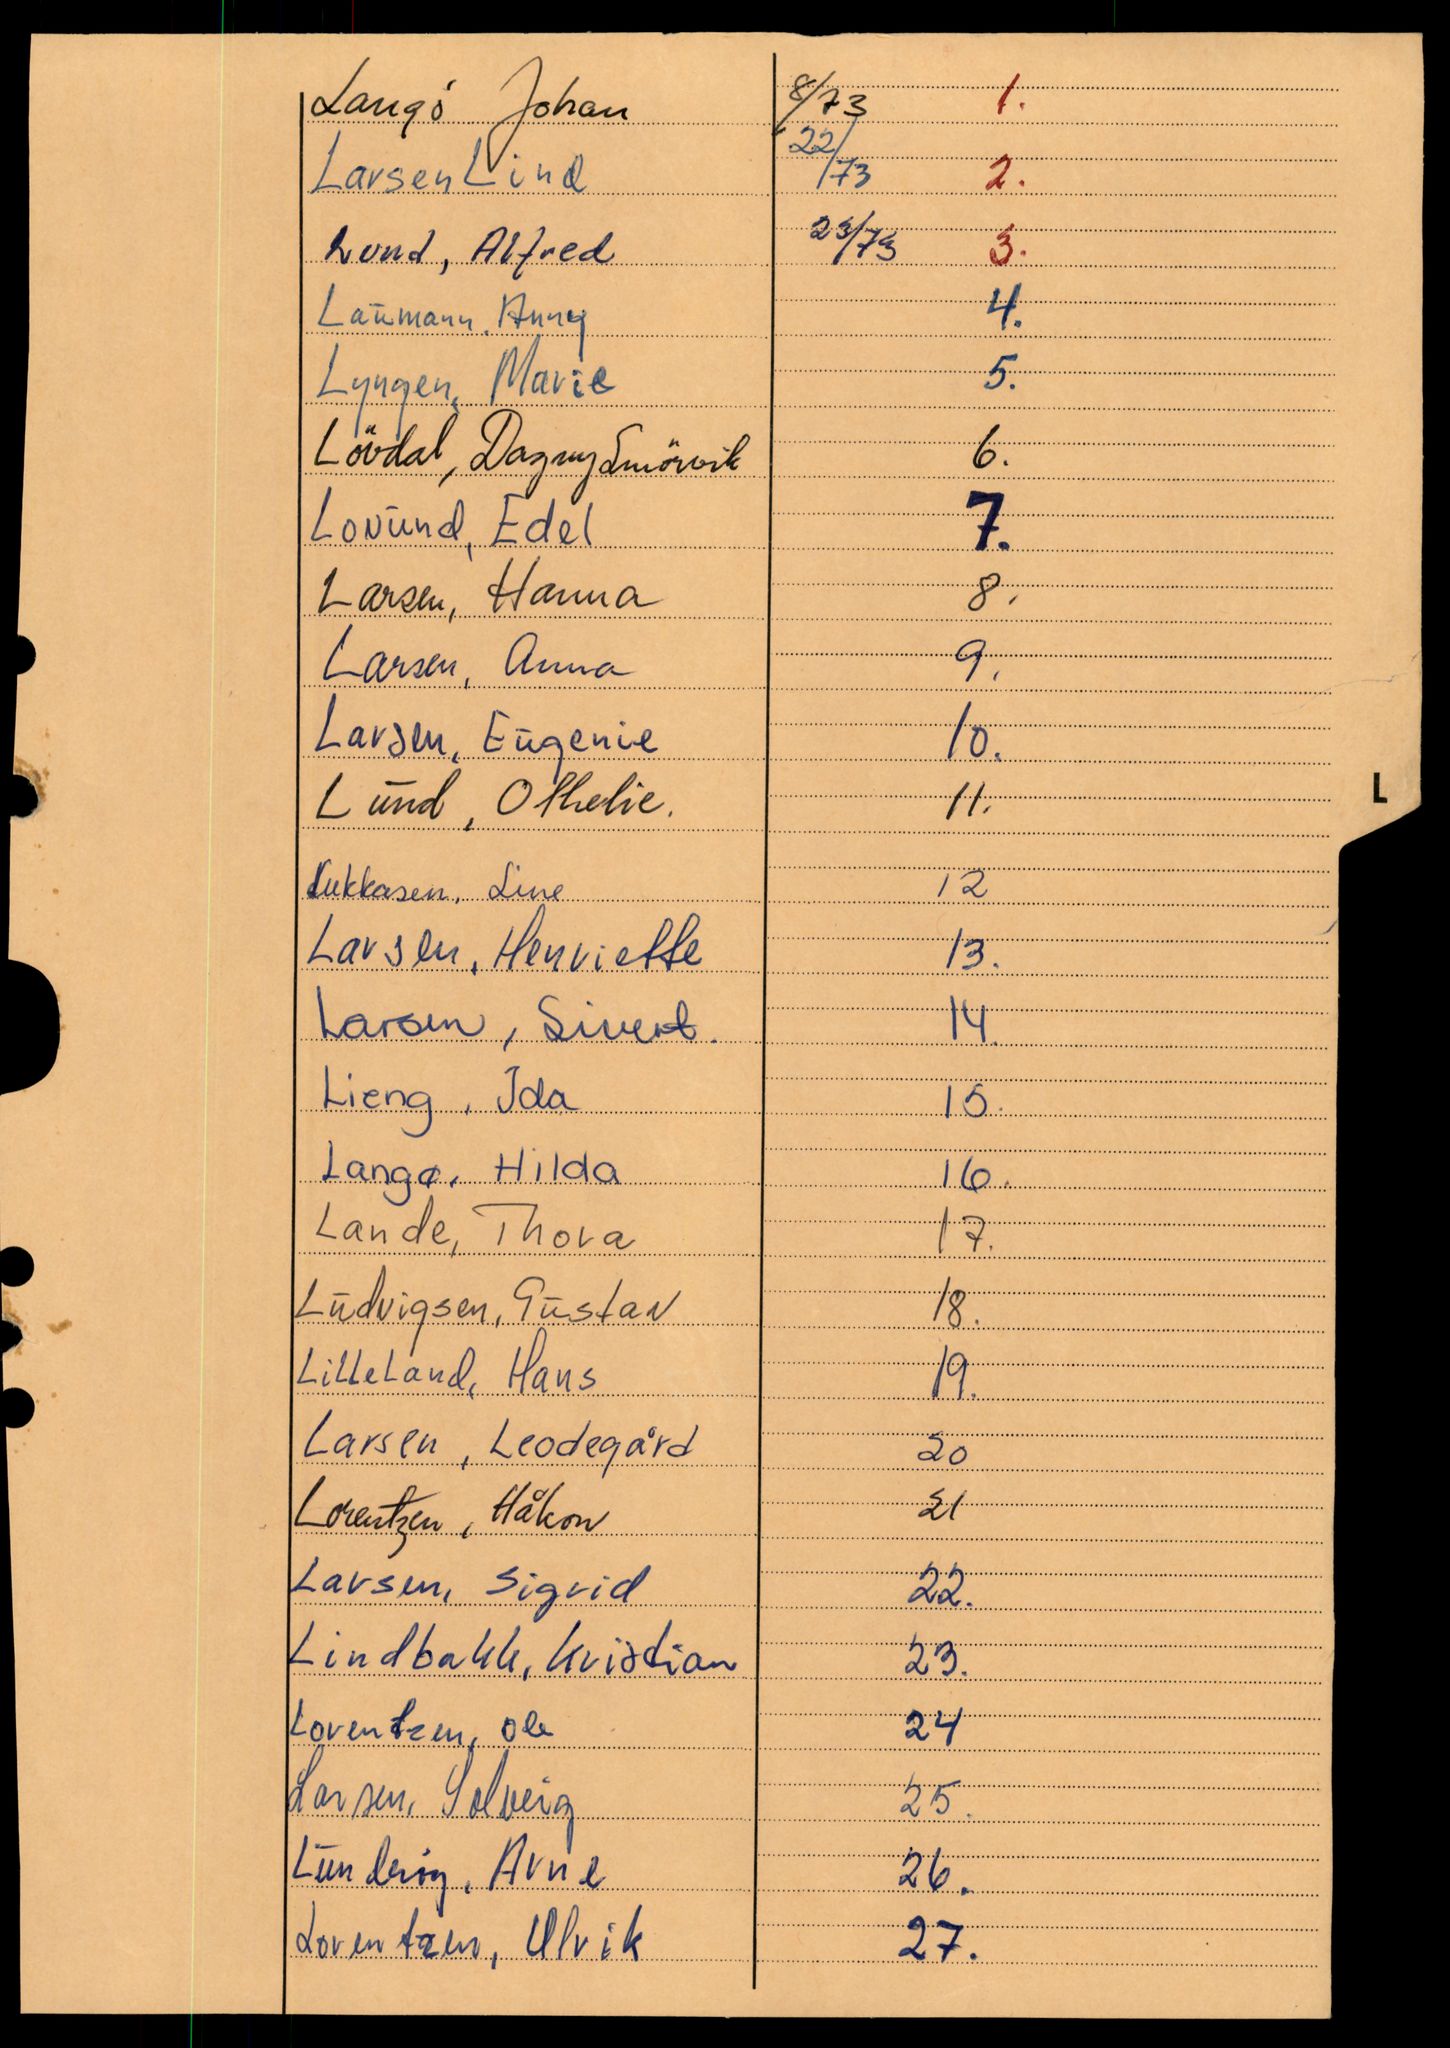 Langö Johan 8/73 1.
Larsen Lind 22/73 2.
Lund, Alfred 23/73 3.
Laumann, Anny 4.
Lyngen, Marie 5.
Lövdal, Dagny Smörvik 6.
Lovund, Edel 7.
Larsen, Hanna 8.
Larsen, Anna 9.
Larsen, Eugenie 10.
Lund, Othelie. 11.
L
Lukkasen, Line 12
Larsen, Henriette 13.
Larsen, Sivert. 14.
Lieng, Ida 15.
Langø, Hilda 16.
Lande, Thora 17.
Ludvigsen, Gustav 18.
Lilleland, Hans 19.
Larsen, Leodegård 20
Lorentzen, Håkon 21
Larsen, Sigrid 22.
Lindbakk, Kristian 23.
Lorentzen, Ole 24
Larsen, Solveig 25.
Arne 26.
Lorentzen, Ulrik 27.